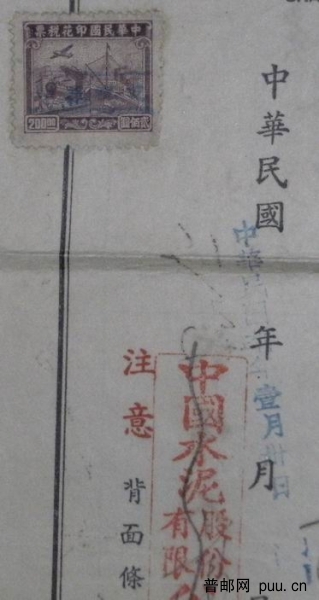 中華民國印花稅票
200.00
貳佰圓
中華民國
年
月
中華
壹月卅日
中國水泥股份
有限
注意
背面條
普邮网 puu.cn